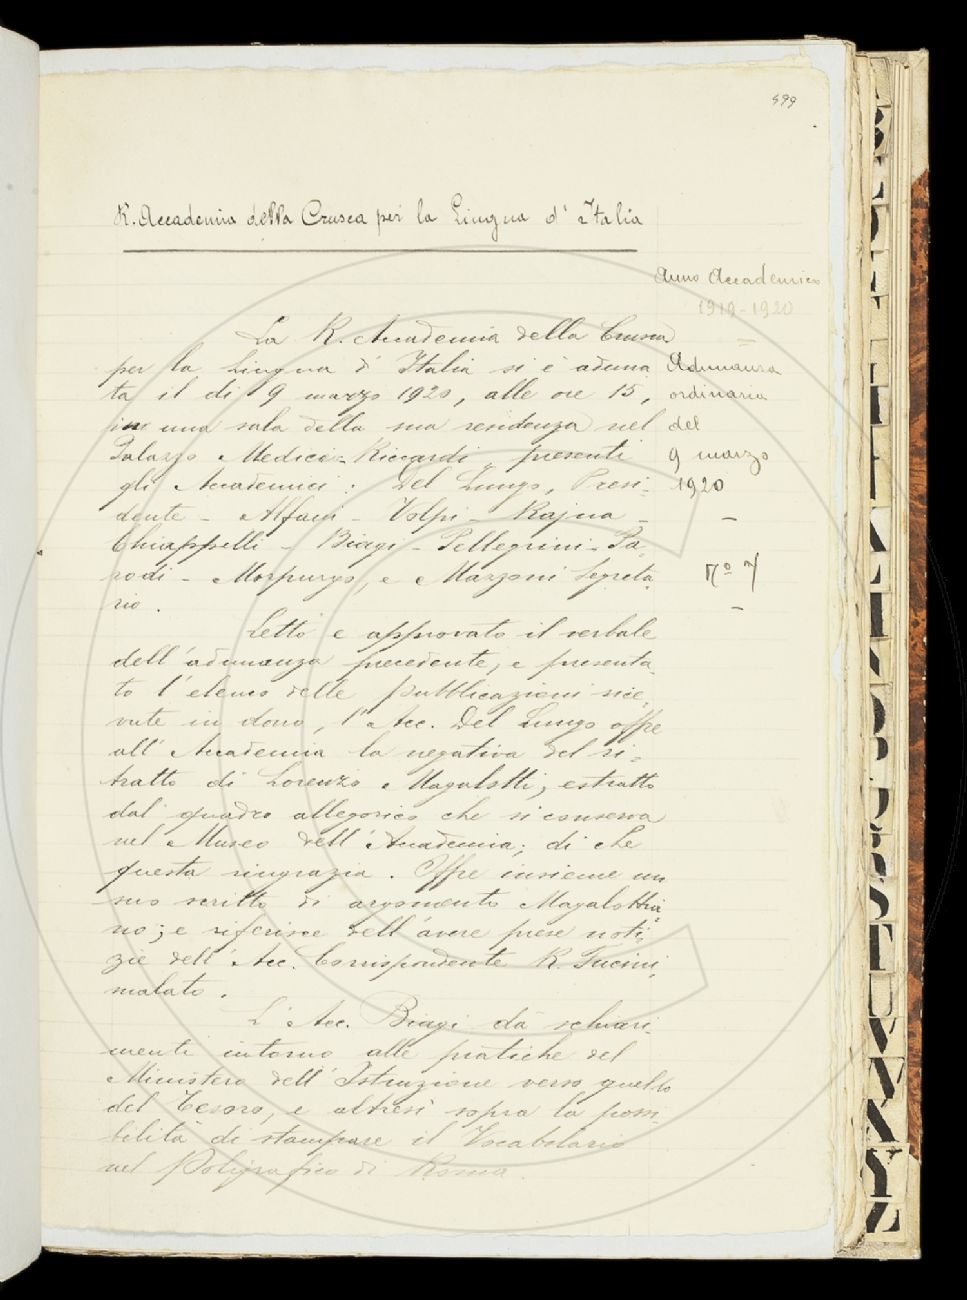 499
R. Accademia della Crusca per la Lingua d'Italia
Anno Accademico
1919-1920
La R. Accademia della Crusca
per la Lingua d'Italia si è aduna
ta il dì 9 marzo 1920, alle ore 15,
in una sala della sua residenza nel
Palazzo Mediceo-Riccardi presenti
gli Accademici: Del Lungo, Presi-
dente - Alfani - Volpi - Rajna -
Chiappelli - Biagi - Pellegrini - Pa-
rodi - Morpurgo, e Mazzoni Segreta-
rio.
Adunanza
ordinaria
del
9 marzo
1920
-
Nº 7
-
Letto e approvato il verbale
dell'adunanza precedente, e presenta-
to l'elenco delle pubblicazioni rice-
vute in dono, l'Acc. Del Lungo offre
all'Accademia la negativa del ri-
tratto di Lorenzo Magalotti, estratto
dal quadro allegorico che si conserva
nel Museo dell'Accademia; di che
questa ringrazia. Offre insieme un
suo scritto di argomento Magalottia-
no; e riferisce dell'avere prese noti-
zie dell'Acc. Corrispondente R. Fucini,
malato.
L'Acc. Biagi dà schiari-
menti intorno alle pratiche del
Ministero dell'Istruzione verso quello
del Tesoro, e altresì sopra la possi-
bilità di stampare il Vocabolario
nel Poligrafico di Roma.